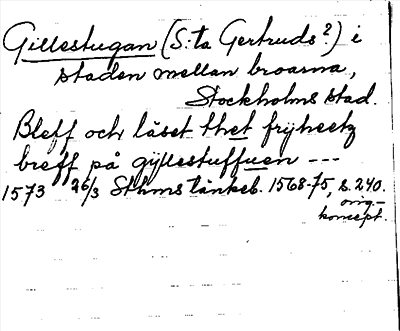 Gillestugan (S:ta Gertruds?) i
staden mellan broarna,
Stockholms stad.
Bleff och läset thet frijheetz
breff på gÿllestuffuen ---
1573 26/3 Sthms tänkeb. 1568-75, s. 240.
orig.-
koncept.